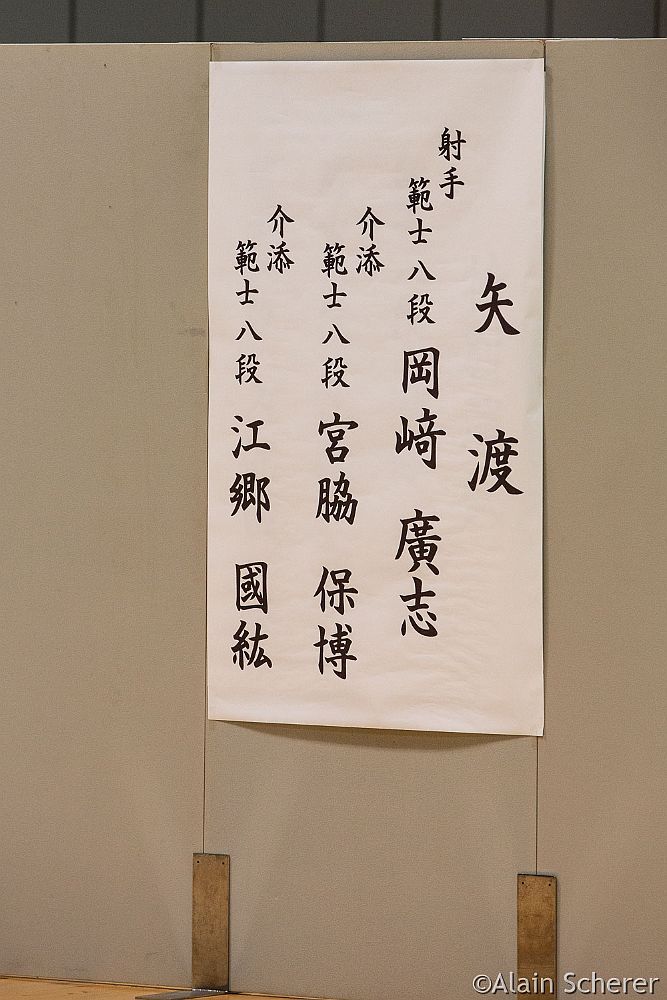 矢渡
射手
範士八段 岡﨑 廣志
介添
範士八段 宮脇 保博
介添
範士八段 江郷 國紘
©Alain Scherer